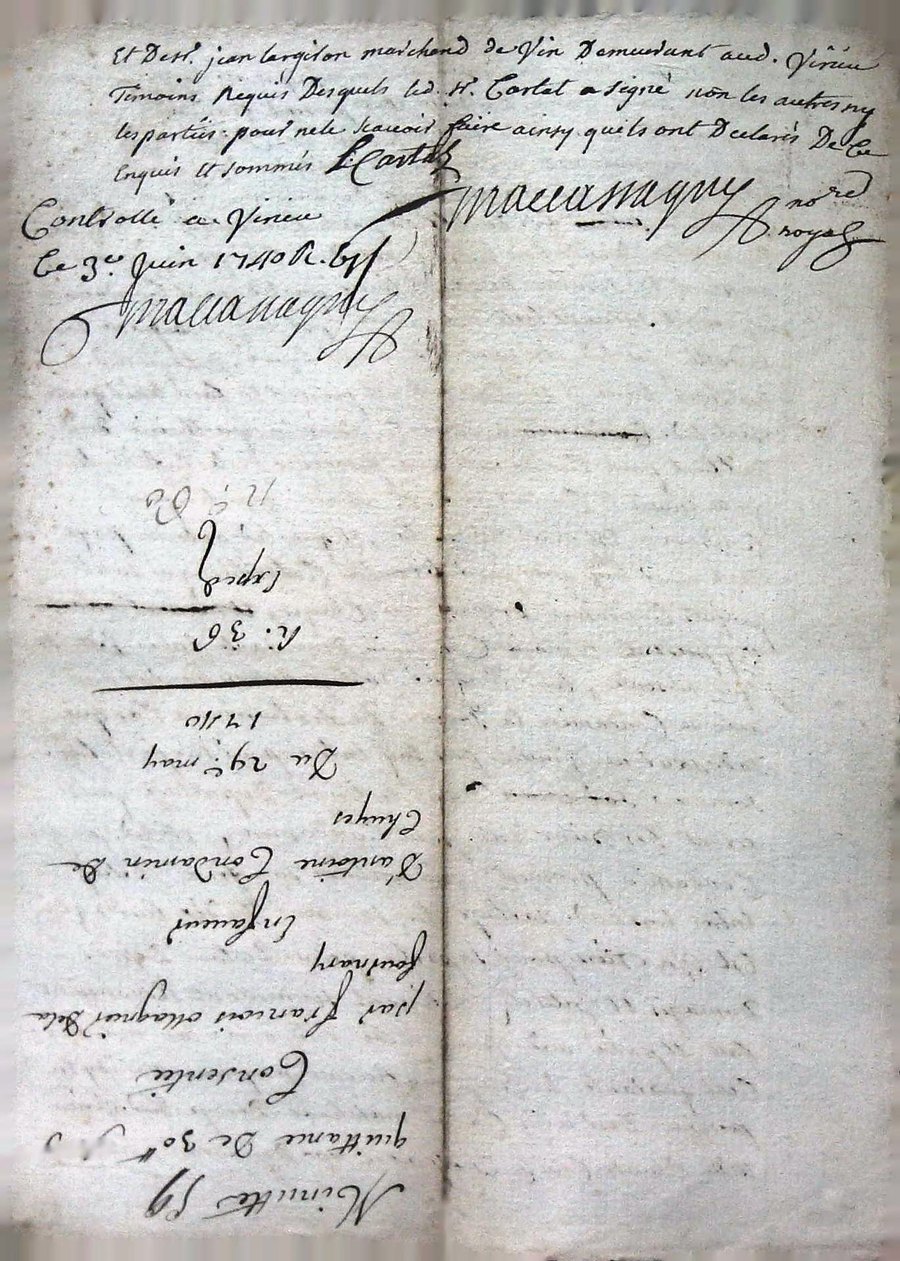 Et De sr. jean largiton marchand de Vin Demeurant aud. Virieu
Temoins Requis Desquels led. sr. Cortet a signé non les autres ny
les partiës pour ne le scavoir faire ainsy quils ont Declarés De Ce
Enquis Et sommés
Maccassagny no.re
royal
Controllé a Virieu
Ce 3e. Juin 1740 R.
Maccassagny
Minutte 59
quittance De 30tt
Consentie
par francois Magnin Dela
fournary
En faveur
D'antoine Condamin de
Chuyes
Du 29e. may
1740
n. 36
Exped